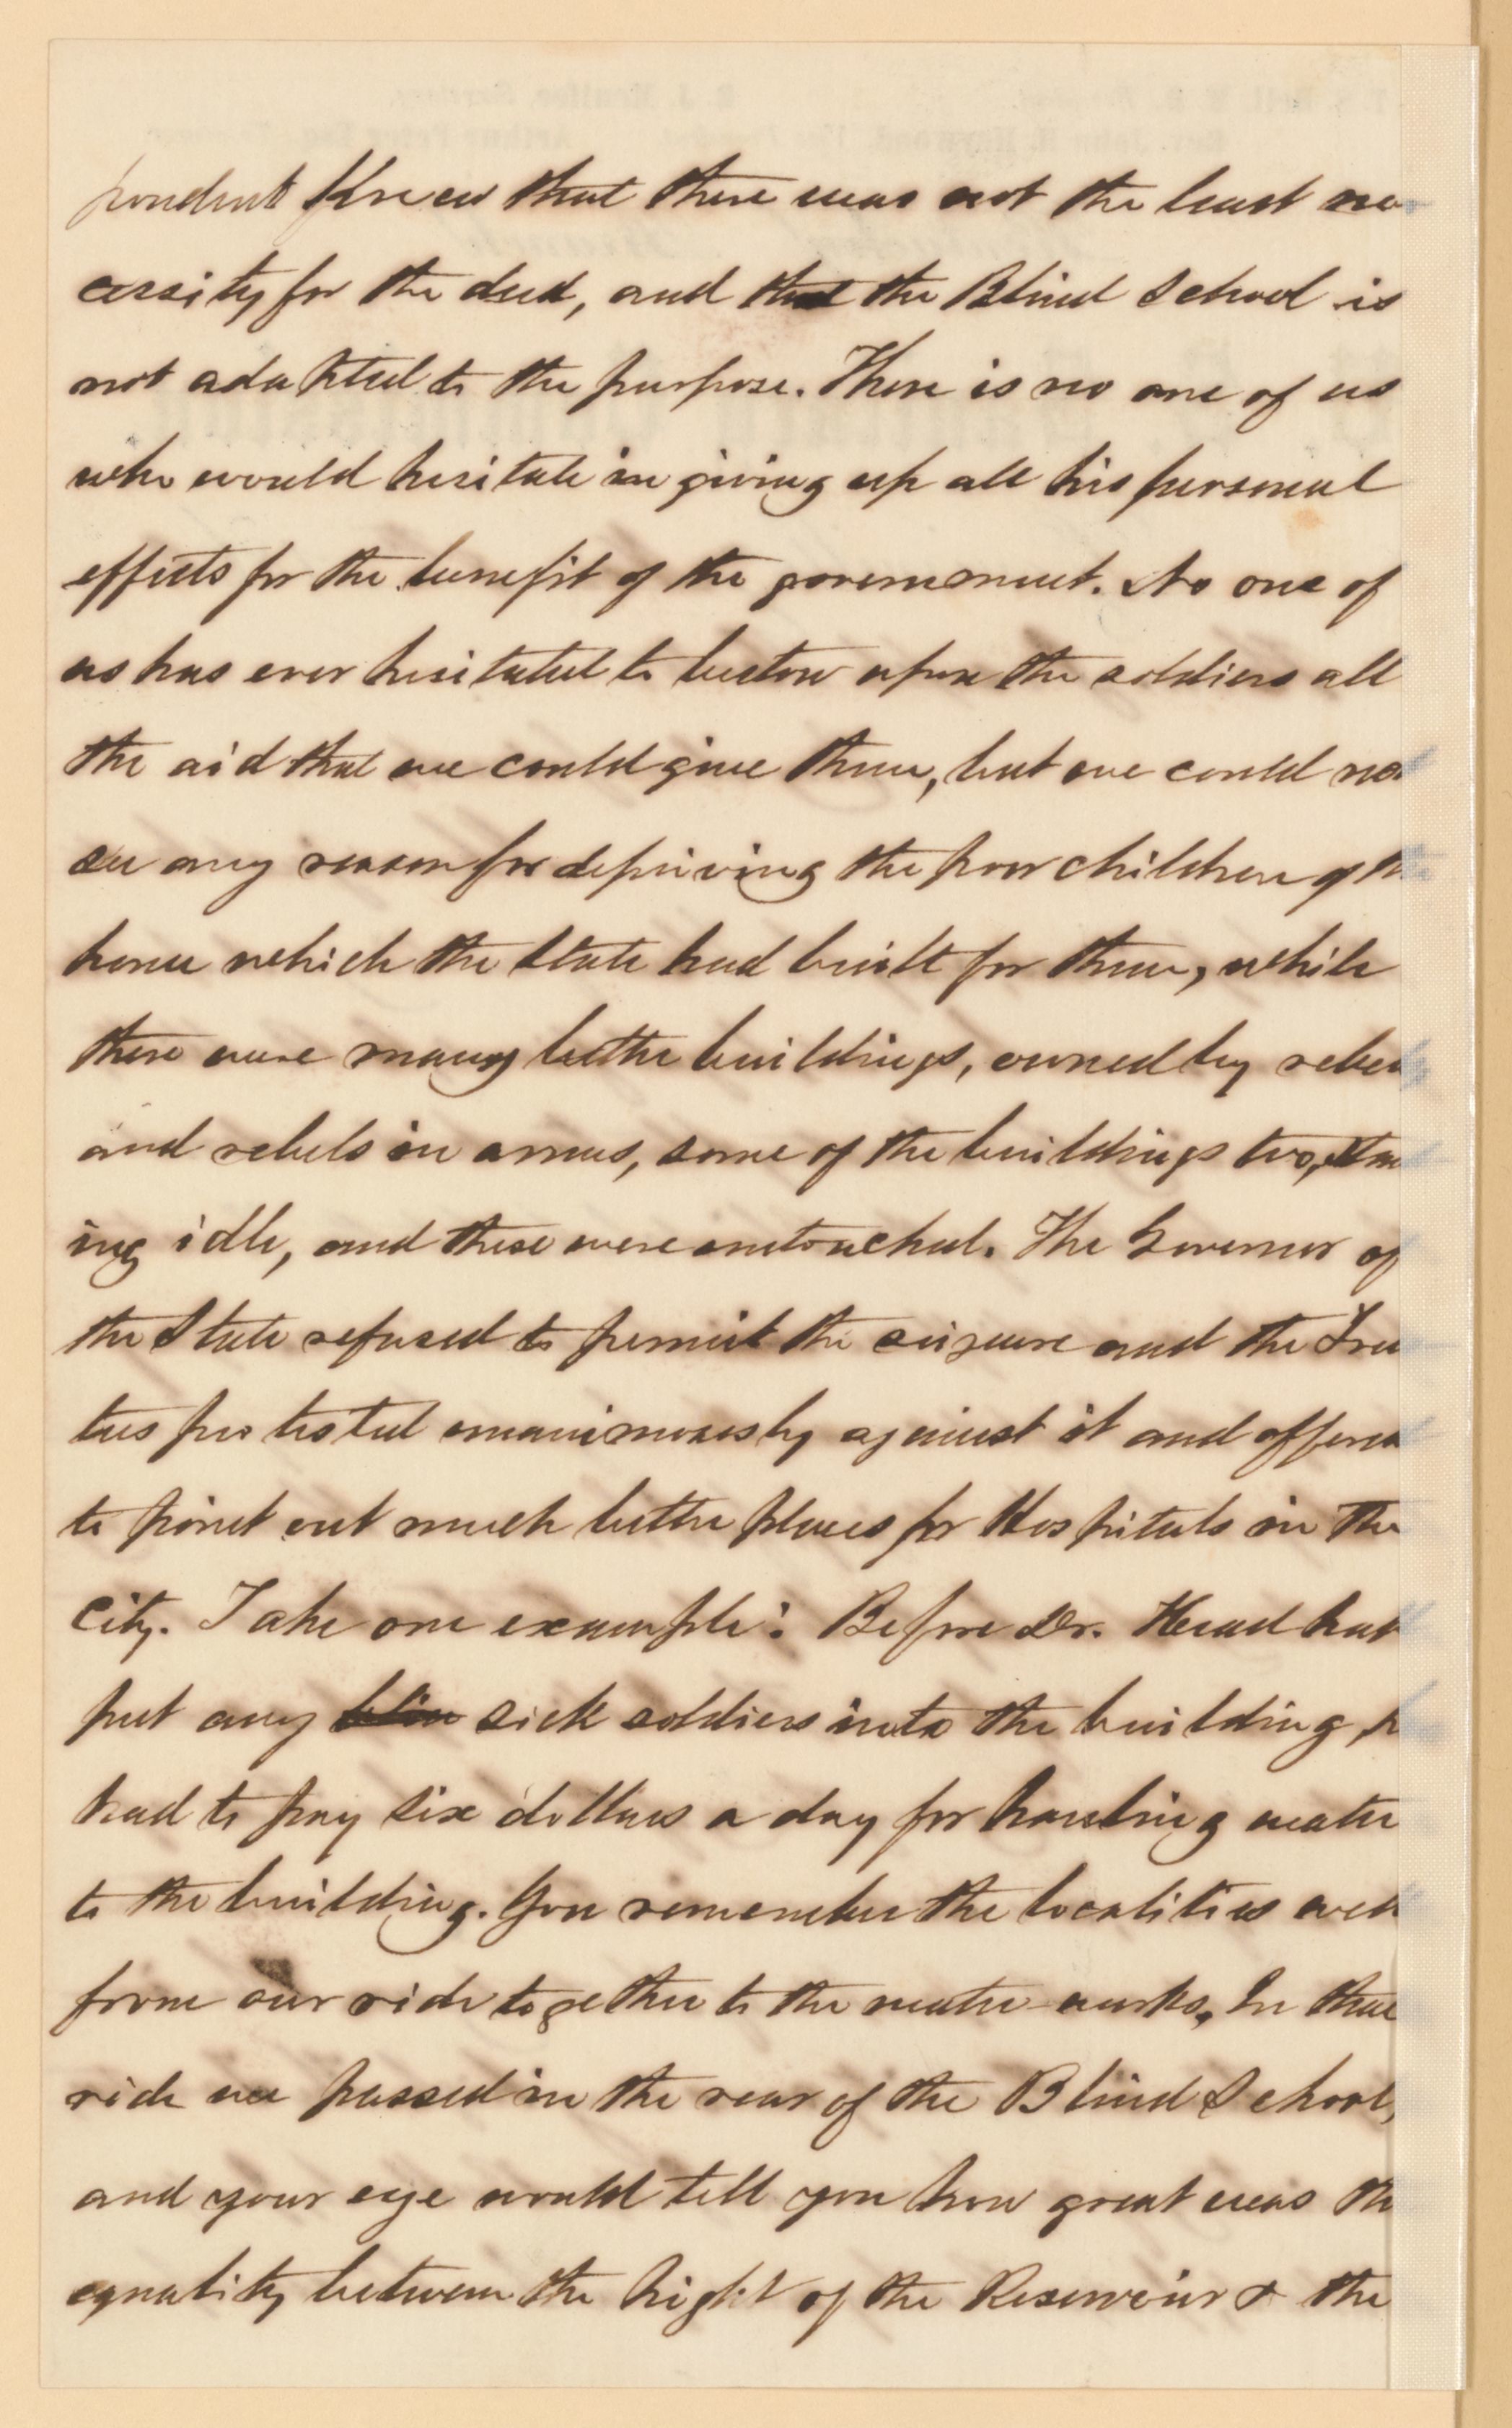 pondent knew that there was not the least ne
cessity for the deed, and that the Blind School is
not adapted to the purpose. There is no one of us
who would hesitate in giving up all his personal
effects for the benefit of the government. No one of
us has ever hesitated to bestow upon the soldiers all
the aid that we could give them, but we could not
see any reason for depriving the poor children of th
home which the State had built for them, while
there were many better buildings, owned by rebel
and rebels in arms, some of the buildings too, stan
ing idle, and these were untouched. The Governor of
the State refused to permit the seizure and the Trus
tees protested unanimously against it and offered
to point out much better places for Hospitals in the
city. Take one example: Before Dr. Head had
put any blin sick soldiers into the building, h
had to pay six dollars a day for hauling water
to the building. You remember the localities well
from our ride together to the water works. In that
ride we passed in the rear of the Blind School,
and your eye would tell you how great was the
equality between the hight of the Reservoir & the